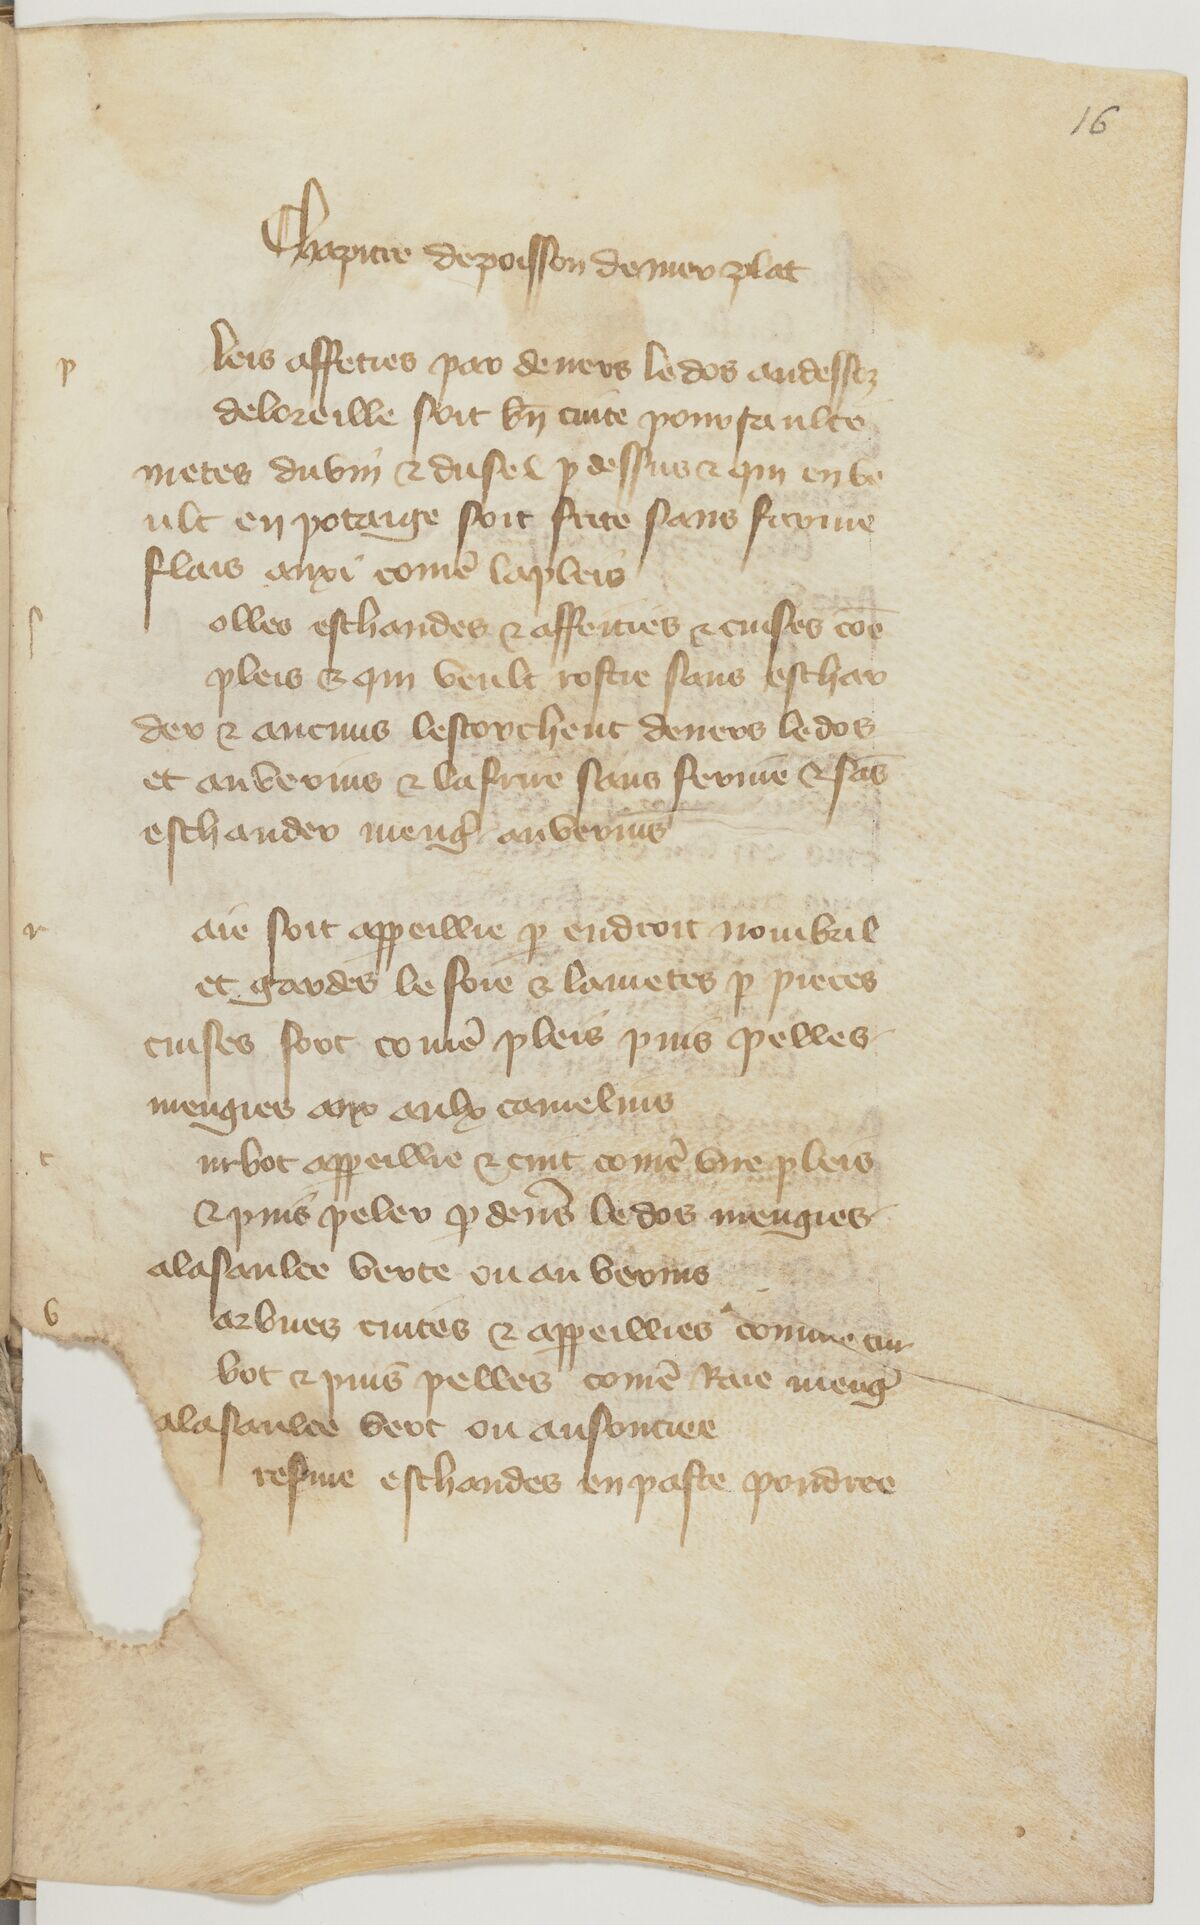 16
Chapitre de poisson de mer plat
p leis affeties par devers le dos au dessoz
de loreille soit bn cuite pour saulce
metes du vin & du sel p dessus & qui en ve
ult en potaige soit frite sans farine
flais auxi comē la pleis
s olles eschaudes & affeities & cuises coē
pleis & qui veult rostie sans eschau
der & aucuns lescorchent devers le dos
et au verius & la friture sans ferine & sās
eschauder meng au verius
r aie soit appeillie p endroit nombril
et gardes le foie & la metes p pieces
cuises sort comē pleis puis pelles
mengies aux aulx camelins
t urbot appeillie & cuit comē une pleis
& puis peler p devs le dos mengies
a la saulce verte ou au verius
b arbues cuites & appeillies comme tur
bot & puis pelles comē Raie meng
a la saulce vert ou au soucier
resme eschaudes en paste poudree